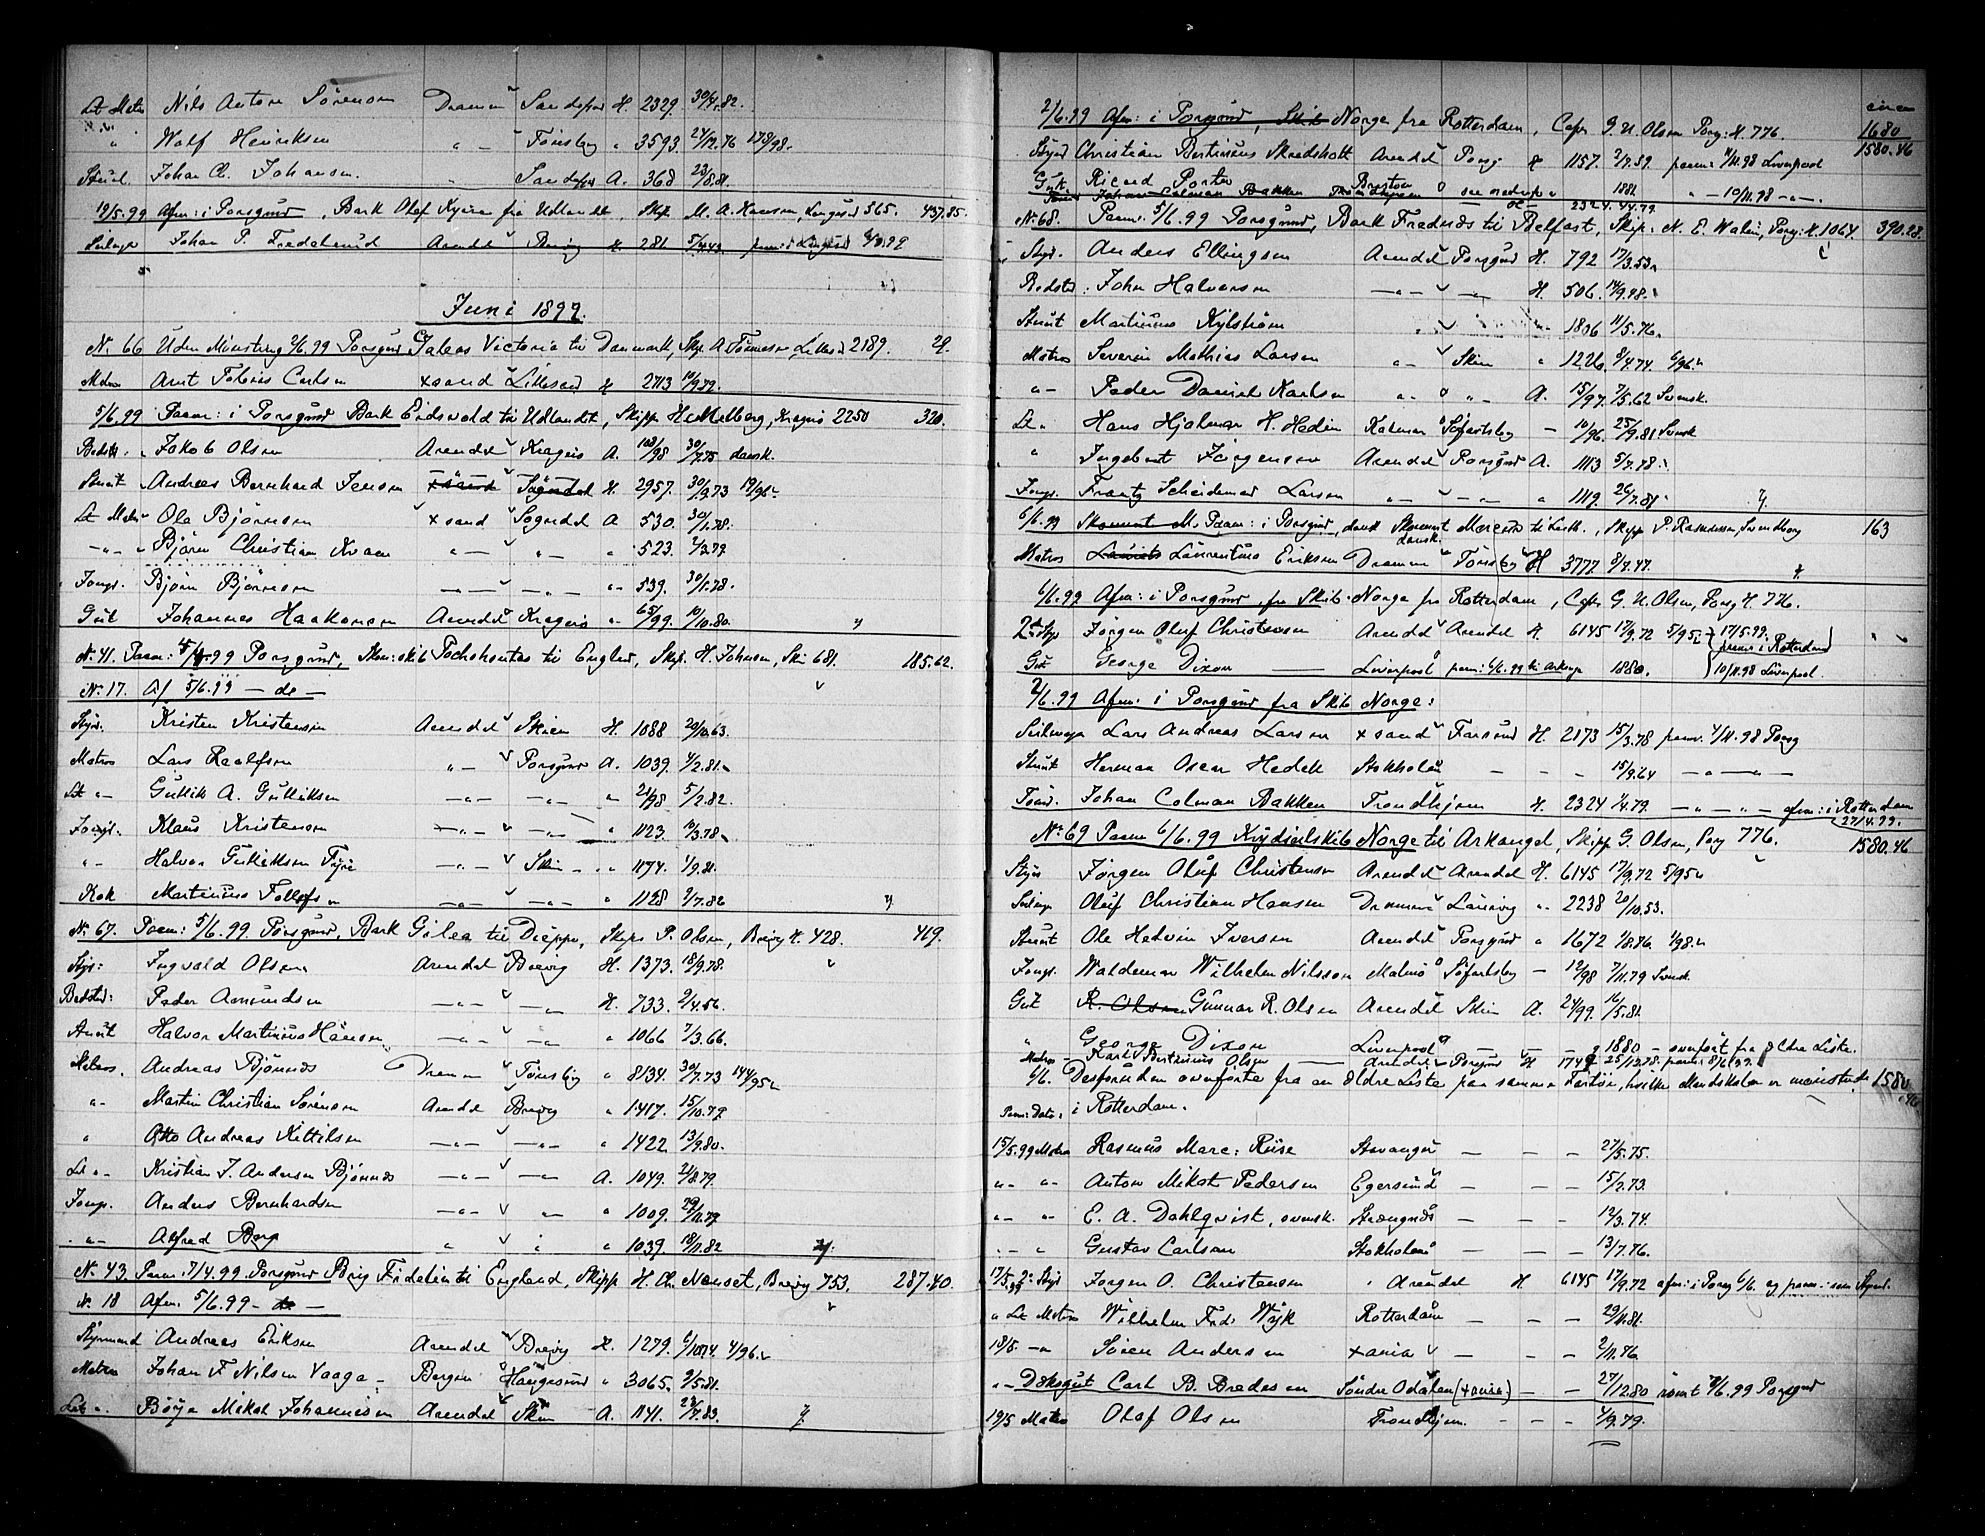 Lt Matr Nils Anton Sörensen Dramm Sandefjord H. 2329 30/4.82.
" Wolf Henriksen " — Tönsberg " 3593. 24/12.76 178/98.
Johan Ch. Johansen " Sandefjord A. 368 23/8.81.
19/5.99 Afm: i Porsgrund, Bark Olaf Kyrre fra Udlandet, Skip. M. A. Hansen, 365. 437.85.
Johan P. Fredeksund Arendal Brevig H. 281.
Juni 1899.
N. 66 Uden Mönstring 2/6.99 Porsgrund Galeas Victoria til Danmark, Skp. A. Tönnesen, Lillesd 2189. 29.
Matros Amt Tobias Carlsen xsand Lillesand H 2713 10/9.79.
5/6.99 Paam: i Porsgrund Bark Eidsvold til Udlandet, Skipp H. Melberg, Kragerö 2250 320.
Bedstk. Jakob Olsen Arendal Kragerö A. 108/98 30/7.75 dansk.
Stuut Andreas Bernhard Jensen Sogndal H. 2957. 30/9.73 19/96
Lt Matr Ole Björnsen xsand Sogndal A 530. 30/1.78.
— " — Björn Christian Kvaen " — " — " 523. 2/3.79
Jongm. Björn Björnsen — " — — " — " 539. 30/1.78.
Gut Johannes Haakonsen Arendal Kragerö " 65/99. 10/10.80.
N. 41. Paam: 5/4.99 Porsgrund, Skon:skib Pochohontas til England, Skp. H. Johnsen, Skien 681. 185.62.
N. 17. Af 5/6.99 — do —
Styrm. Kristen Kristensen Arendal Skien H. 1088 29/10.63.
Matros Lars Raalfsen " — Porsgrund A. 1039. 4/2.81.
Lt " — Gullik A. Gulliksen — " — — " — " 21/98 5/2.82.
Jongm. Klaus Kristensen — " — — " — " 1123. 10/3.78.
" — Halvor Gulliksen Fyrie — " — Skien " 1174. 1/9.81.
Kok Martinius Tollefsen — " — — " — " 1128 2/7.86
N. 67. Paam: 5/6.99. Porsgrund, Bark Gilea til Dieppe, Skipr P. Olsen, Brevig H. 428. 419.
Styr: Ingvald Olsen Arendal Brevig H. 1373. 18/9.78.
Bedstm: Peder Amundsen — " — — " — H. 733. 9/4.56.
Stuut Halvor Martinius Hansen — " — — " — " 1066 7/3.66.
Matros. Andreas Bjönnes Drammen Tönsberg " 8134. 30/7.73 144/95
" — Martin Christian Sörensen Arendal Brevig " 1417. 15/10.79.
" Otto Andreas Kittilsen — " — — " — " 1422 13/9.80.
Lt " — Kristian J. Andersen Bjönnes — " — — " — A. 1049. 21/8.79.
Jongm. Anders Bernhardsen — " — " — " 1009. 29/11.79
" — Alfred Berg " " " 1039. 18/11.82
N. 43. Paam: 7/4.99. Porsgrund Brig Fidelia til England, Skipp H. Chr. Nenset, Brevig 753. 287.40.
N. 18 Afm. 5/6.99 — do —
Styrmand Andreas Eriksen Arendal Brevig H. 1279. 6/10.74. 4/96.
Matros Johan F. Nilsen Vaaga Bergen Haugesund " 3065. 9/5.81.
Lt " Börge Mikal Johannesen Arendal Skien A. 1141. 28/7.83.
2/6.99 Afm: i Porsgrund, Skib Norge fra Rotterdam, Capt G. N. Olsen Porsg: H. 776. circa 1680
Styrm Christian Bertinius Skredsholt Arendal Porsg H 1157. 2/7.59. paam: 4/11.98 Liverpool 1580.46
Gut. Ricard Porter Boston 1881. " — 10/11.98 — " —.
Johan Colman Bakken 2324. 4.4.79.
N. 68. Paam: 5/6.99 Porsgrund, Bark Frednæs til Belfast, Skip. N. E. Walin, Porsg: H. 1064. 390.28.
Styr. Anders Ellingsen Arendal Porsgrund H. 792 17/3.53.
Bedstm: John Halvorsen — " — — " — H. 506. 14/9.48.
Stuut Martinius Kylström " " 1836 11/5.76.
Matros Severin Mathias Larsen " — Skien " 1226. 8/4.74 6/96.
" — Peder Daniel Karlsen " — " — A. 15/97. 7/5.62 Svensk.
Lt " Hans Hjalmar H. Hedin Kalmar Söfartsby — 10/96. 25/9.81 Svensk
" Ingebret Jörgensen Arendal Porsgrund A. 1113 5/7.78.
Jongm. Frantz Scheidemad Larsen " — — " — " 1119. 26/7.81
6/6.99 Paam: i Porsgrund, dansk Skonnert Mercur til Leith, Skipp P. Rasmussen, Svendborg 163
Matros Lauritz Laurentius Eriksen Drammen Tönsberg H 3777. 8/4.47.
6/6.99 Afm: i Porsgrund, fra Skib Norge fra Rotterdam, Capt G. N. Olsen, Porsg H. 776.
2den Styr Jörgen Oluf Christensen Arendal Arendal H. 6145 17/9.72 5/95. 17/5.99. paam i Rotterdam
Gut George Dixon — Liverpool paam: 6/6.99 til Arkangel 1880. 10/11.98 Liverpool.
2/6.99 Afm: i Porsgrund fra Skib Norge:
Seilmager Lars Andreas Larsen xsand Farsund H. 2173 15/3.78 paam. 4/11.98 Porsg
Stuut Herman Oscar Hedek Stokholm — — — 15/9.64 — " — " —
Tömm. Johan Colman Bakken Trondhjem H. 2324 4/4.79. — " — " — afm: i Rotterdam 27/4.99.
N: 69 Paam 6/6.99 Krydseilskib Norge til Arkangel, Skipp G. Olsen, Porsg 776. 1580.46
Styr Jörgen Oluf Christensen Arendal Arendal H. 6145 17/9.72 5/95
Seilmager Oluf Christian Hansen Drammen Laurvig " 2238 20/10.53.
Stuut Ole Hetvin Iversen Arendal Porsgrund " 1672 1/8.76. 1/98.
Jongm. Waldemar Wilhelm Nilsson Malmö Söfartsby — 12/98 7/11.79 Svensk
Gut R. Olsen Gunnar R. Olsen Arendal Skien A. 24/99. 16/5.81.
" George Dixon Liverpool 1880 — overfört fra ældre Liste.
Matros Karl Bertinius Olsen — Arendal Porsgrund H 1749 25/12.78. paam: 8/6.99.
6/6. Desforuden overförte fra en ældre Liste paa samme Fartöi, hvilke Mandskaber er mönstrede 1580.46
Paam: Dato: i Rotterdam.
15/5.99 Matros Rasmus Marc: Riise Stavanger — — — 27/5.75.
" — " — Anton Mikal Pedersen Egersund — — — 15/2.73.
" — " — E. A. Dahlqvist, svensk. Strengnäs — — — 12/3.74.
" — " Gustav Carlsen Stokholm — — — 13/7.76.
17/5.99 2: Styr Jorgen O. Christensen " Arendal H 6145 17/9.72 afm: i Porsg 6/6. og paam: som Styrmd.
" Lt Matros Wilhelm Fredr. Wijk Rotterdam — — — 29/11.81.
18/5. — " Sören Andersen xania — — — 2/11.76
" — Dæksgut Carl B. Bredesen Sönder Odalen (xania) — — 27/12.80 römt 7/6.99 Porsgrund
19/5 Matros Olaf Olsen Trondhjem. — — — 4/9.79.